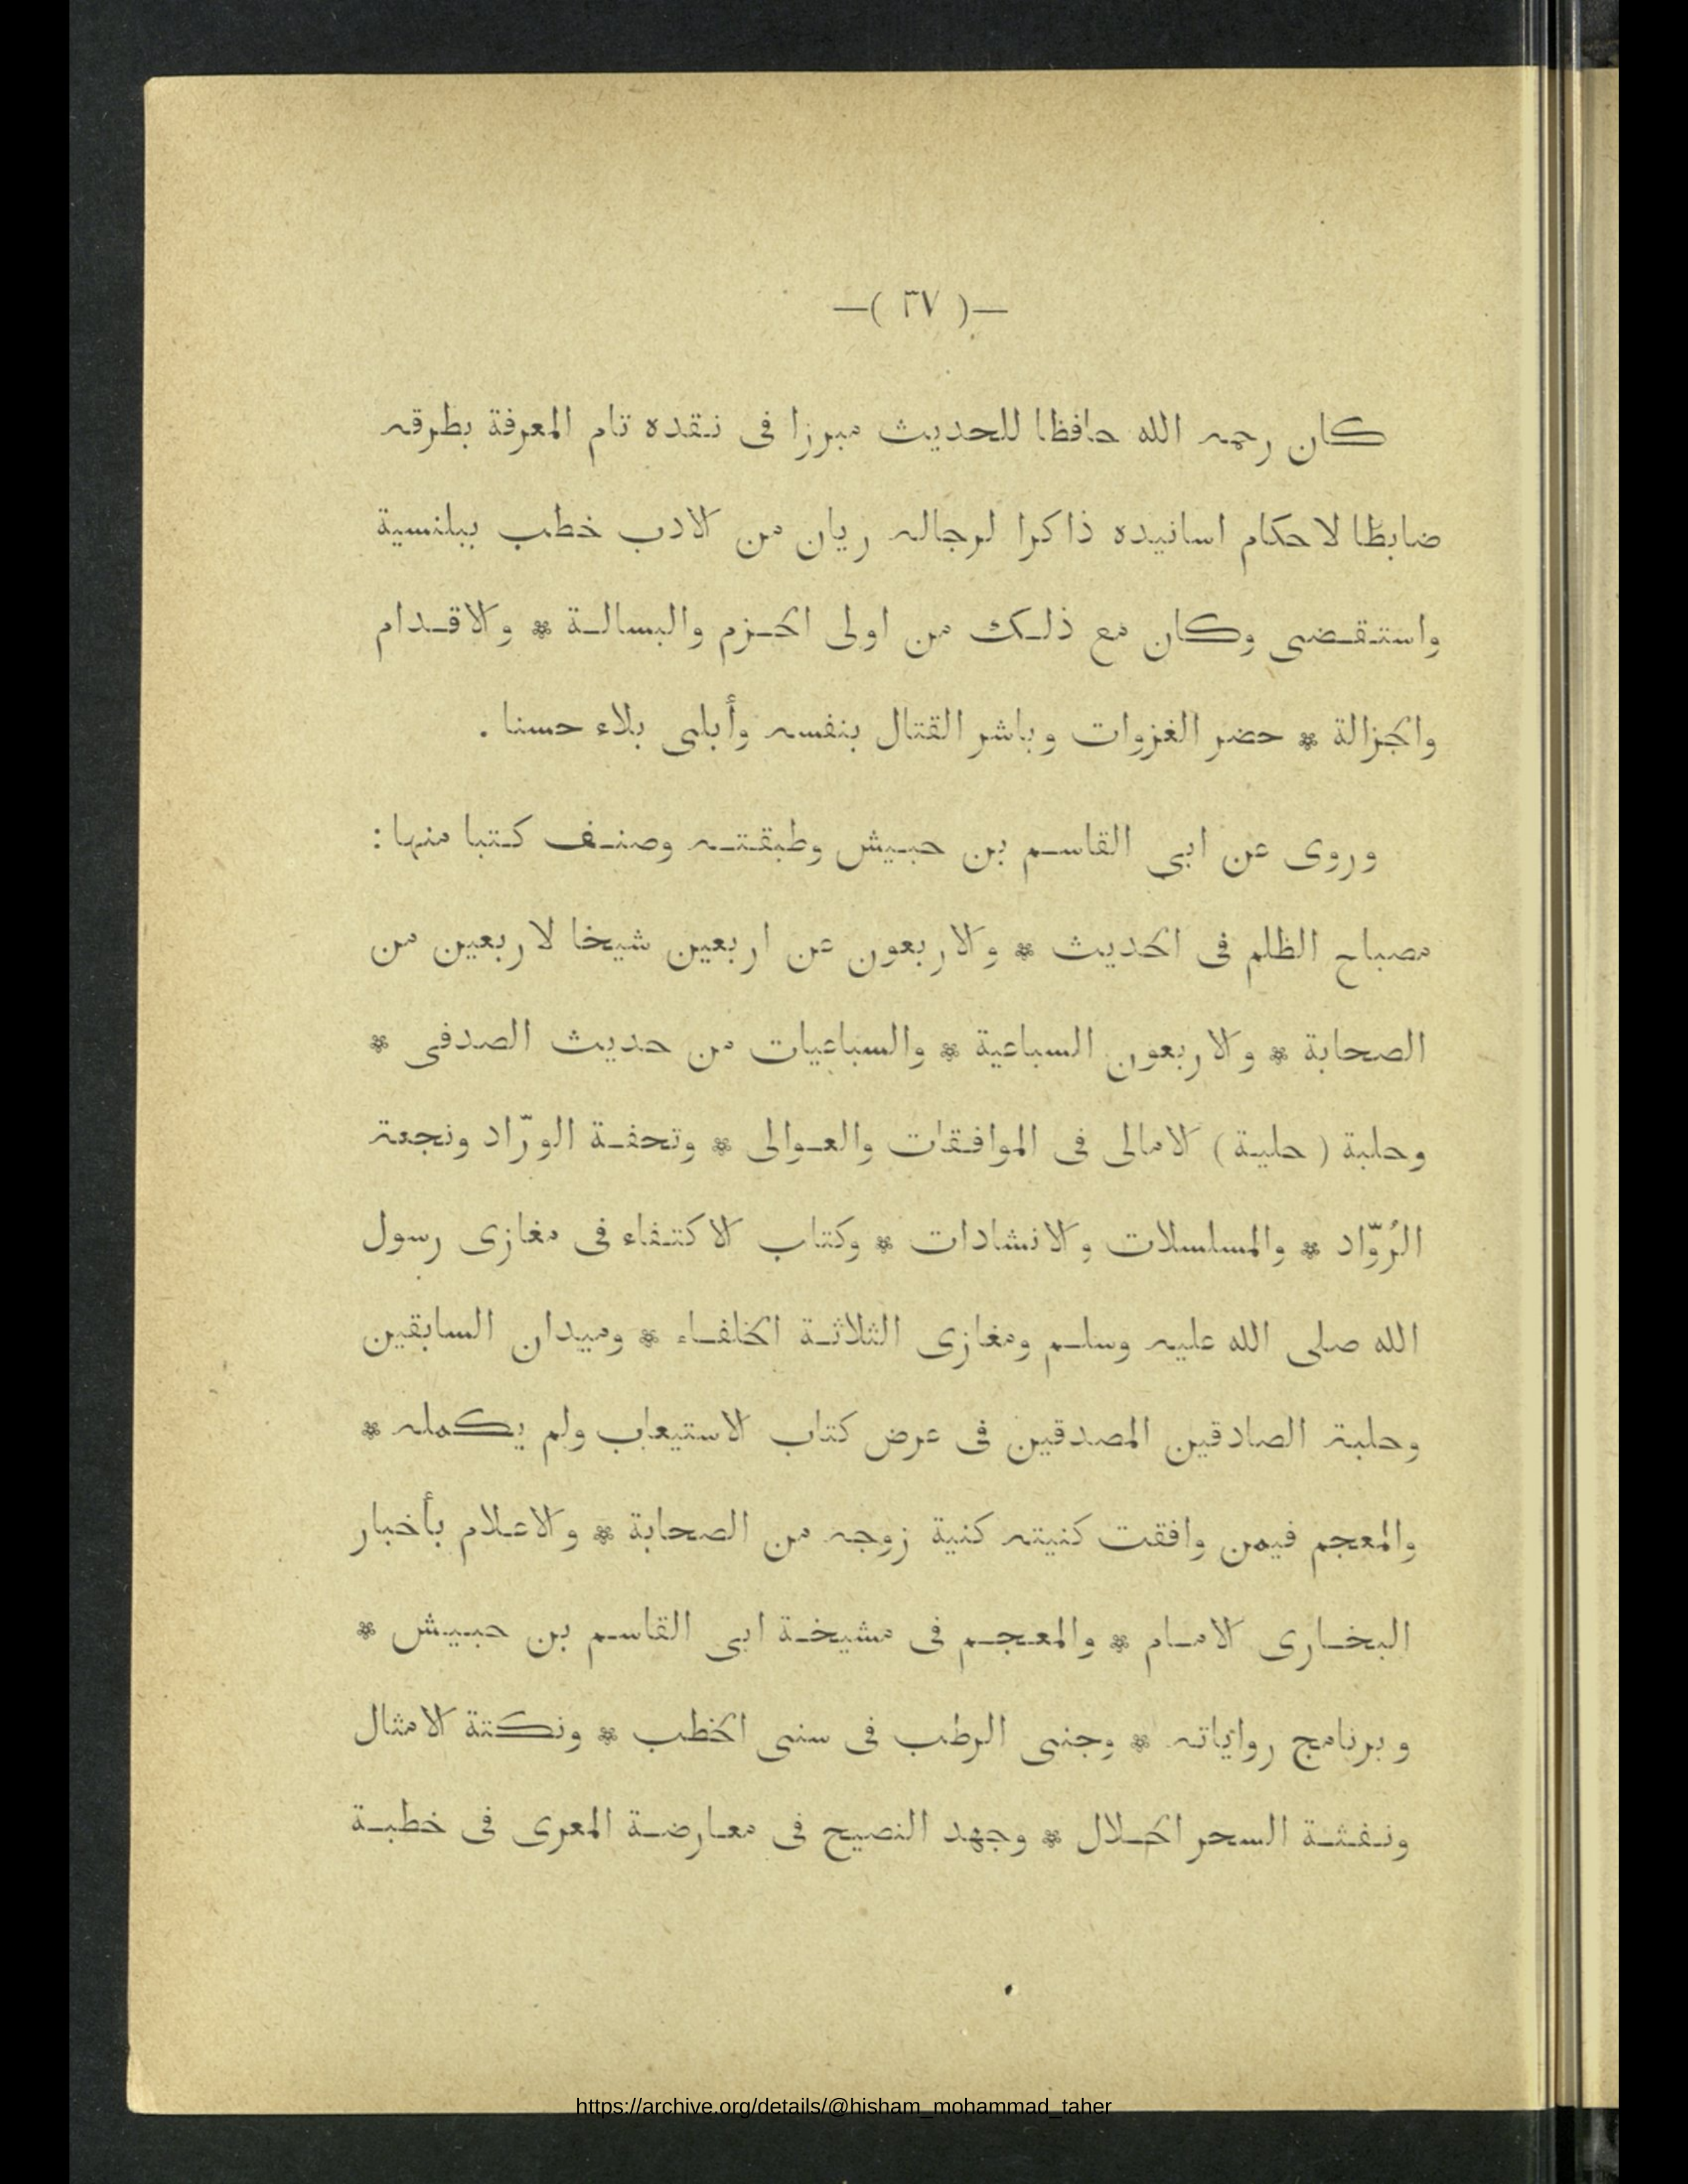 —( ٣٧ )—
كان رحمه الله حافظا للحديث مبرزا فى نقده تام المعرفة بطرقه
ضابطا لاحكام اسانيده ذاكرا لرجاله ريان من الادب خطب ببلنسية
واستقضى وكان مع ذلك من اولى الحزم والبسالة * والاقدام
والجزالة * حضر الغزوات وباشر القتال بنفسه وأبلى بلاء حسنا .
وروى عن ابى القاسم بن حبيش وطبقته وصنف كتبا منها :
مصباح الظلم فى الحديث * والاربعون عن اربعين شيخا لاربعين من
الصحابة * والاربعون السباعية * والسباعيات من حديث الصدفى *
وحلبة ( حلية ) الامالى فى الموافقات والعوالى * وتحفة الورّاد ونجعة
الرُوّاد * والمسلسلات والانشادات * وكتاب الاكتفاء فى مغازى رسول
الله صلى الله عليه وسلم ومغازى الثلاثة الخلفاء * وميدان السابقين
وحلبة الصادقين المصدقين فى عرض كتاب الاستيعاب ولم يكمله *
والمعجم فيمن وافقت كنيته كنية زوجه من الصحابة * والاعلام بأخبار
البخارى الامام * والمعجم فى مشيخة ابى القاسم بن حبيش *
وبرنامج رواياته * وجنى الرطب فى سنى الخطب * ونكتة الامثال
ونفثة السحر الحلال * وجهد النصيح فى معارضة المعرى فى خطبة
https://archive.org/details/@hisham_mohammad_taher